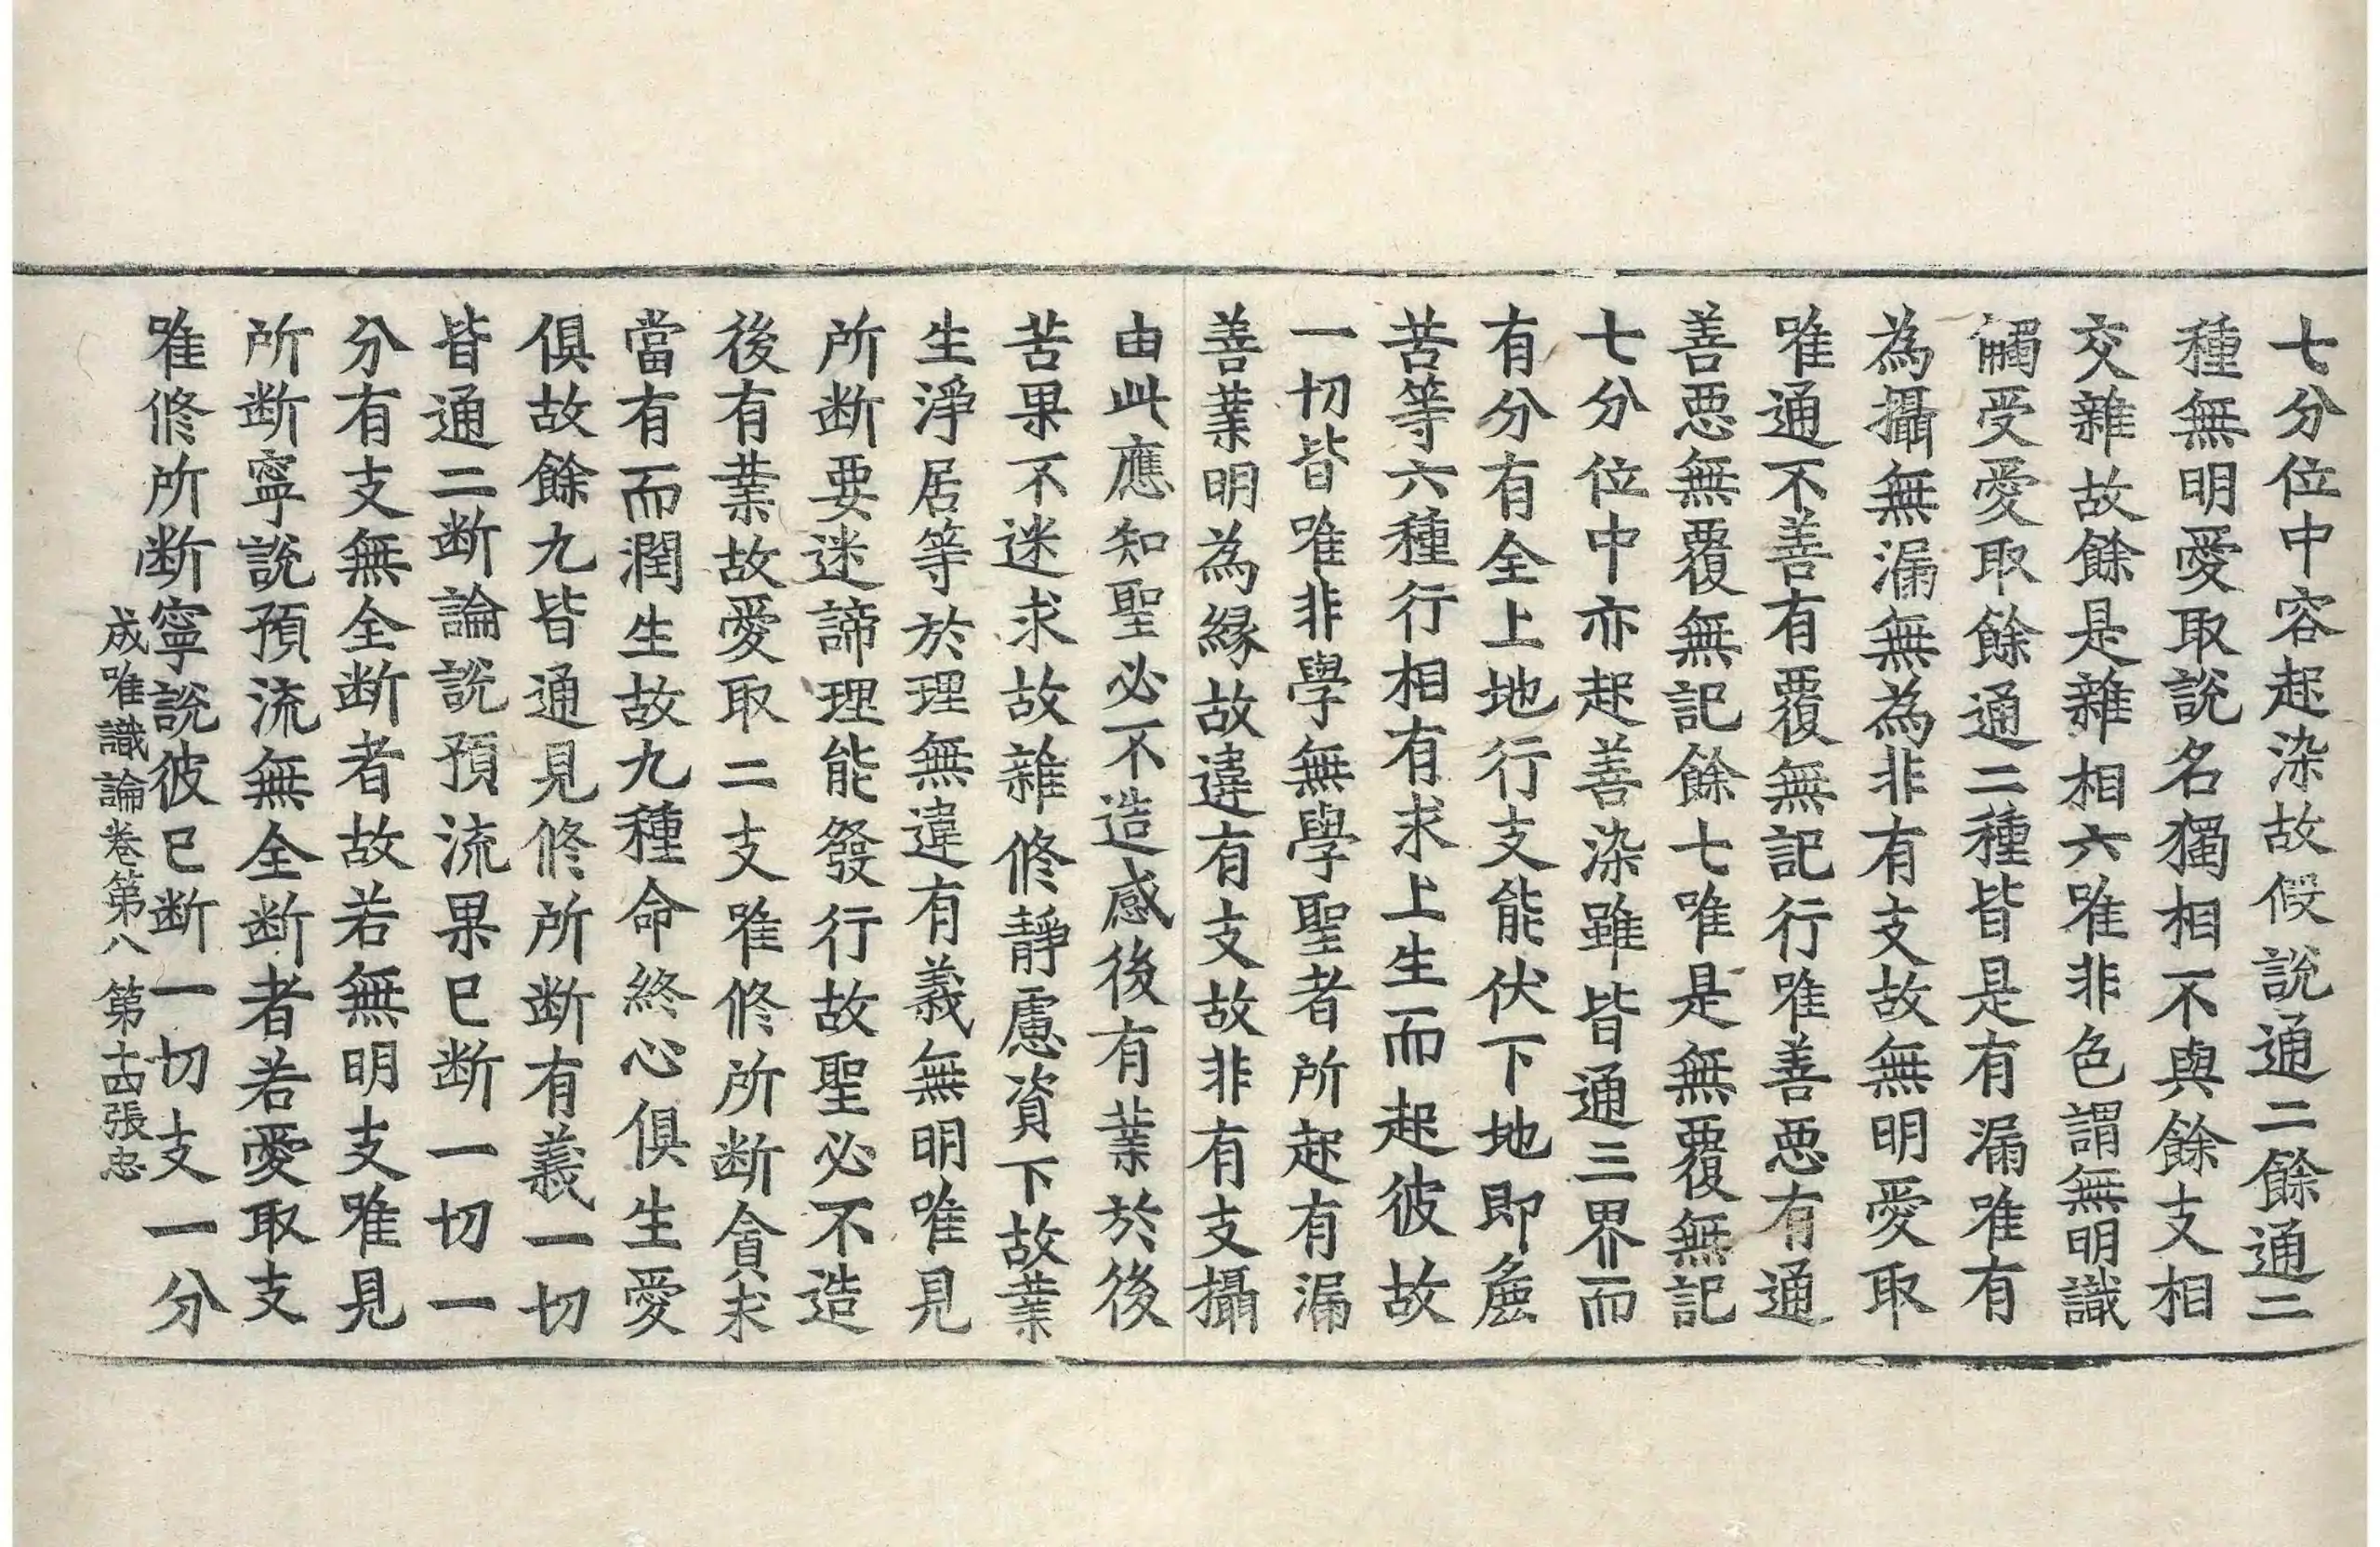 七分位中容起染故假説通二餘通二
種無明愛取説名獨相不與餘支相
交雜故餘是雜相六唯非色謂無明識
觸受愛取餘通二種皆是有漏唯有
為攝無漏無為非有支故無明愛取
唯通不善有覆無記行唯善悪有通
善悪無覆無記餘七唯是無覆無記
七分位中亦起善染雖皆通三界而
有分有全上地行支能伏下地即麁
苦等六種行相有求上生而起彼故
一切皆唯非學無學聖者所起有漏
善業明為縁故違有支故非有支攝
由此應知聖必不造感後有業於後
苦果不迷求故雜修靜慮資下故業
生淨居等於理無違有義無明唯見
所断要迷諦理能發行故聖必不造
後有業故愛取二支唯修所断貪求
當有而潤生故九種命終心俱生愛
俱故餘九皆通見修所断有義一切
皆通二断論説預流果已断一切一
分有支無全断者故若無明支唯見
所断寧說預流無全断者若愛取支
唯修所断寧説彼已断一切支一分
成唯識論卷第八 第十四張 忠